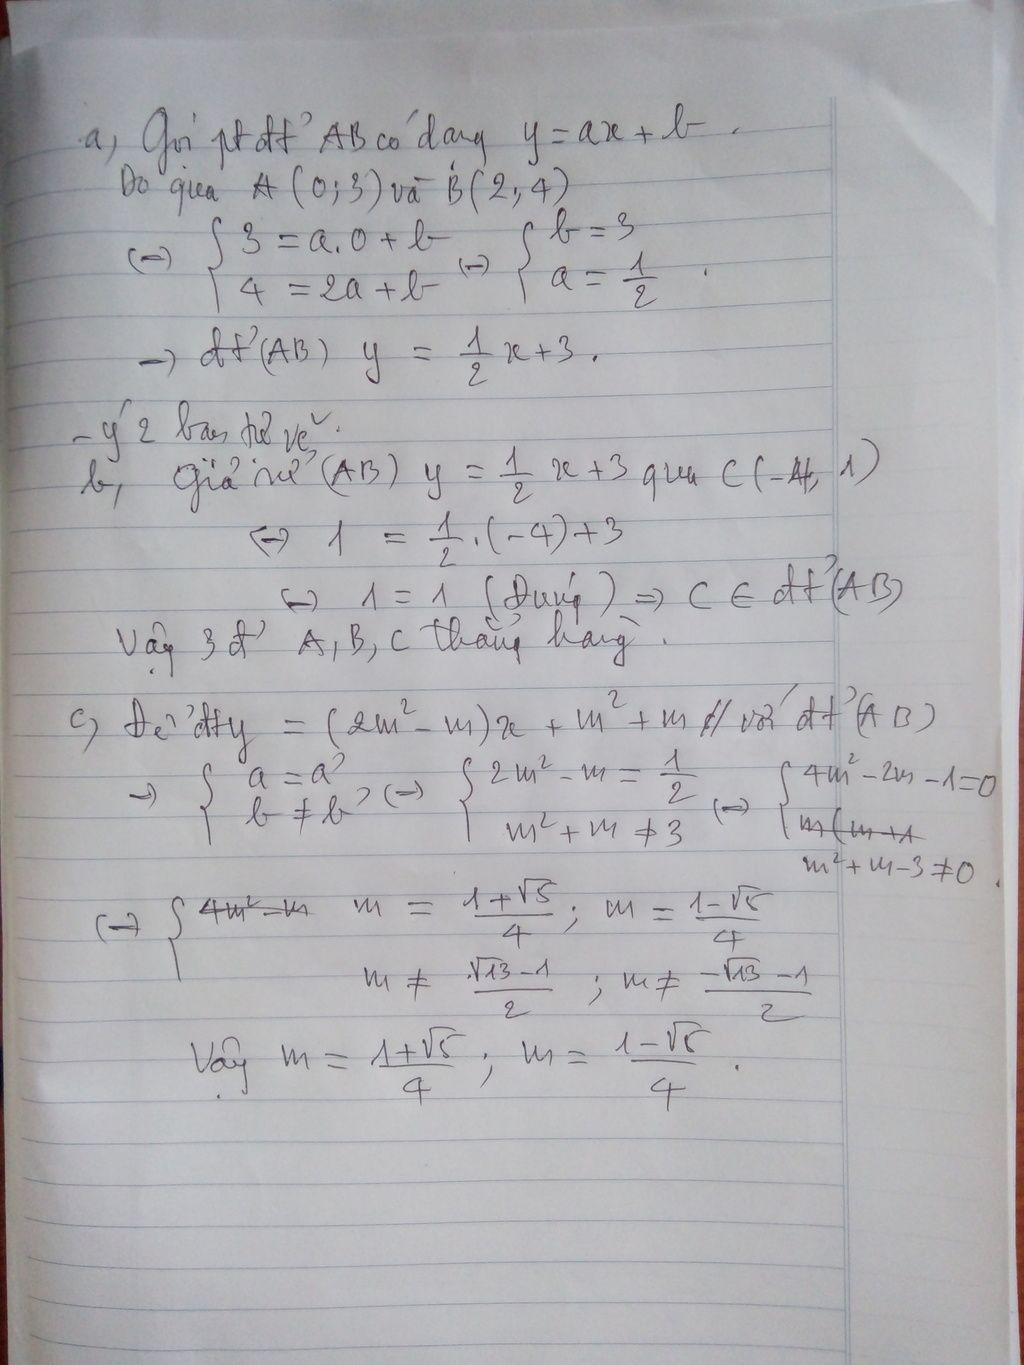 a, Gọi pt đt' AB có dạng y = ax + b.
Do qua A (0; 3) và B (2; 4)
(->) { 3 = a.0 + b (->) { b = 3
4 = 2a + b a = 1/2 .
-> đt' (AB) y = 1/2 x + 3.
- ý 2 bạn tự vẽ.
b, Giả sử (AB) y = 1/2 x + 3 qua C (-4, 1)
<-> 1 = 1/2 . (-4) + 3
<-> 1 = 1 (Đúng) => C ∈ đt' (AB)
Vậy 3 đ' A, B, C thẳng hàng.
c, Để đt y = (2m² - m)x + m² + m // với đt' (AB)
-> { a = a' (->) { 2m² - m = 1/2 (->) { 4m² - 2m - 1 = 0
b ≠ b' m² + m ≠ 3 m(m+1
m² + m - 3 ≠ 0 .
(->) { 4m² - m m = (1+√5)/4 ; m = (1-√5)/4
m ≠ (√13 - 1)/2 ; m ≠ (-√13 - 1)/2
Vậy m = (1+√5)/4 ; m = (1-√5)/4 .